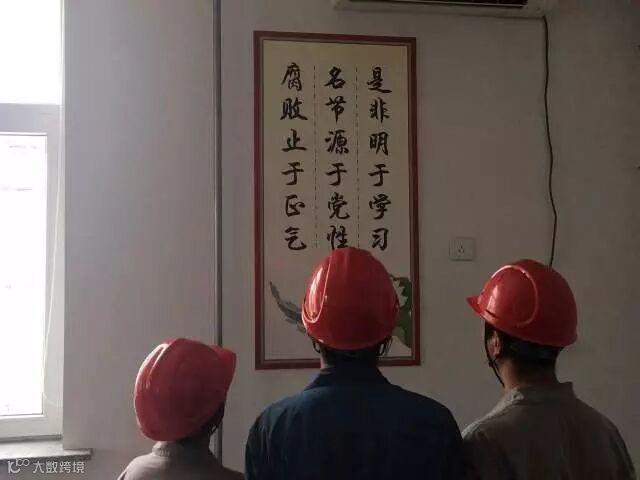 是非明于学习
名节源于党性
腐败止于正气
10100 大数跨境